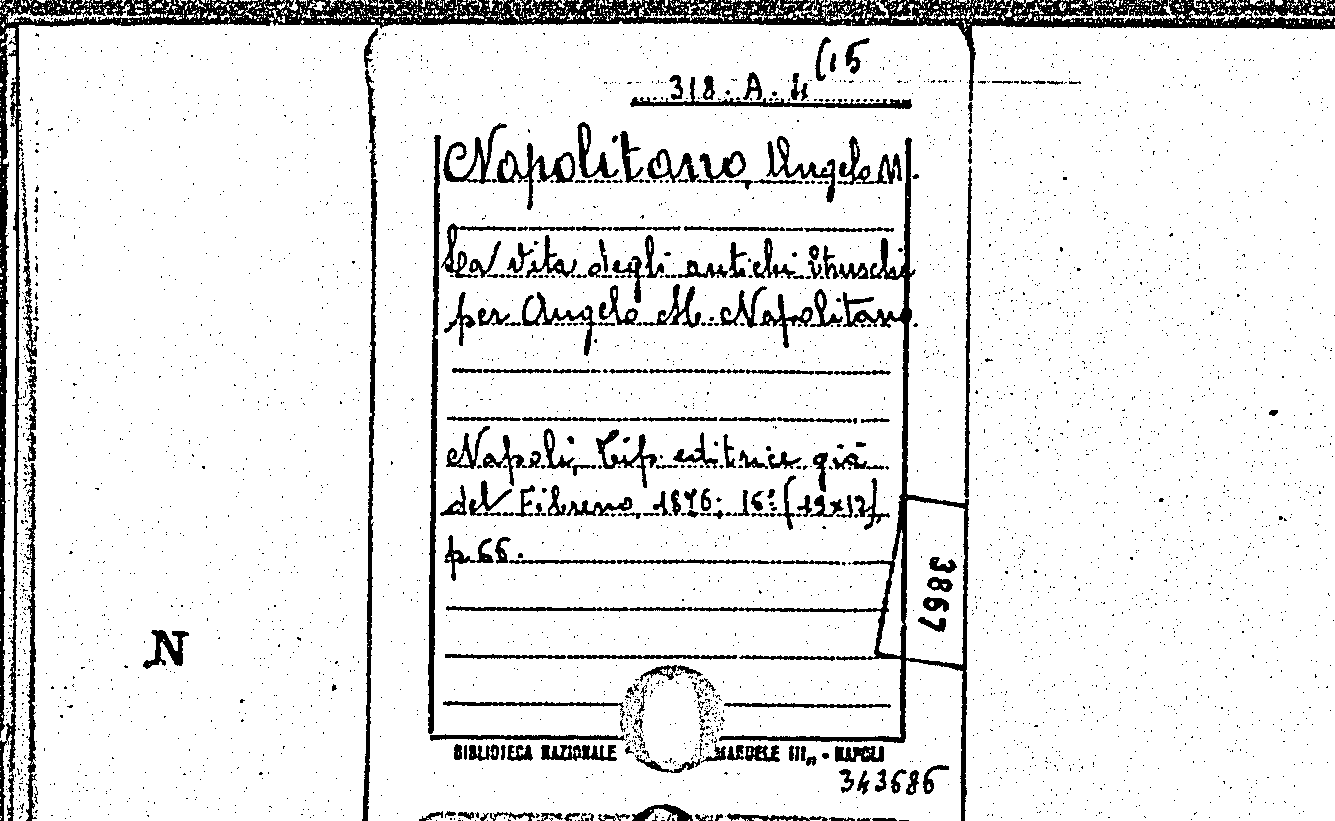 318. A. 4 (15
Napolitano, Angelo M.
La vita degli antichi Etruschi
per Angelo M. Napolitano.
Napoli, Tip. editrice già
del Fibreno, 1876; 16º (19x12),
p. 66.
3867
N
BIBLIOTECA NAZIONALE MANUELE III,, - NAPOLI
343686